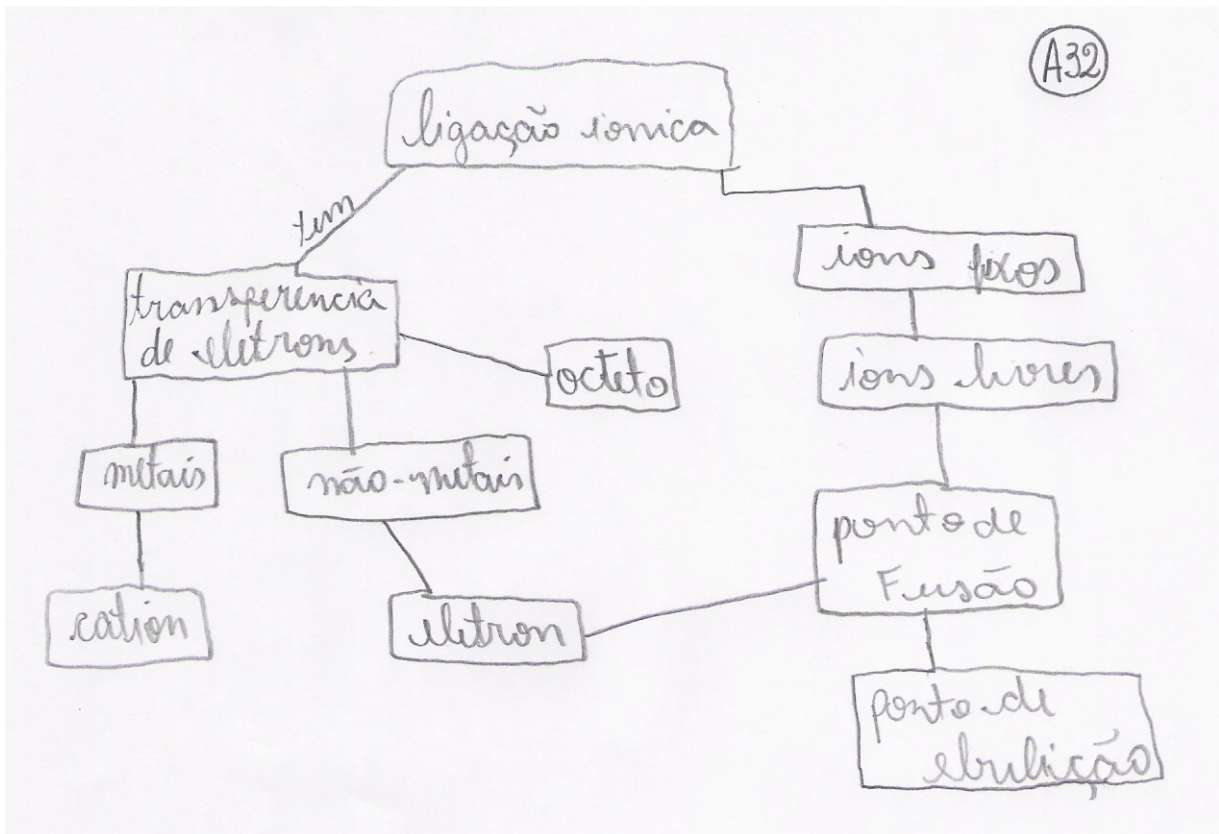 A32
ligação ionica
tem
ions fixos
transferencia
de eletrons
octeto
ions livres
metais
não-metais
ponto de
Fusão
cation
eletron
ponto de
ebulição